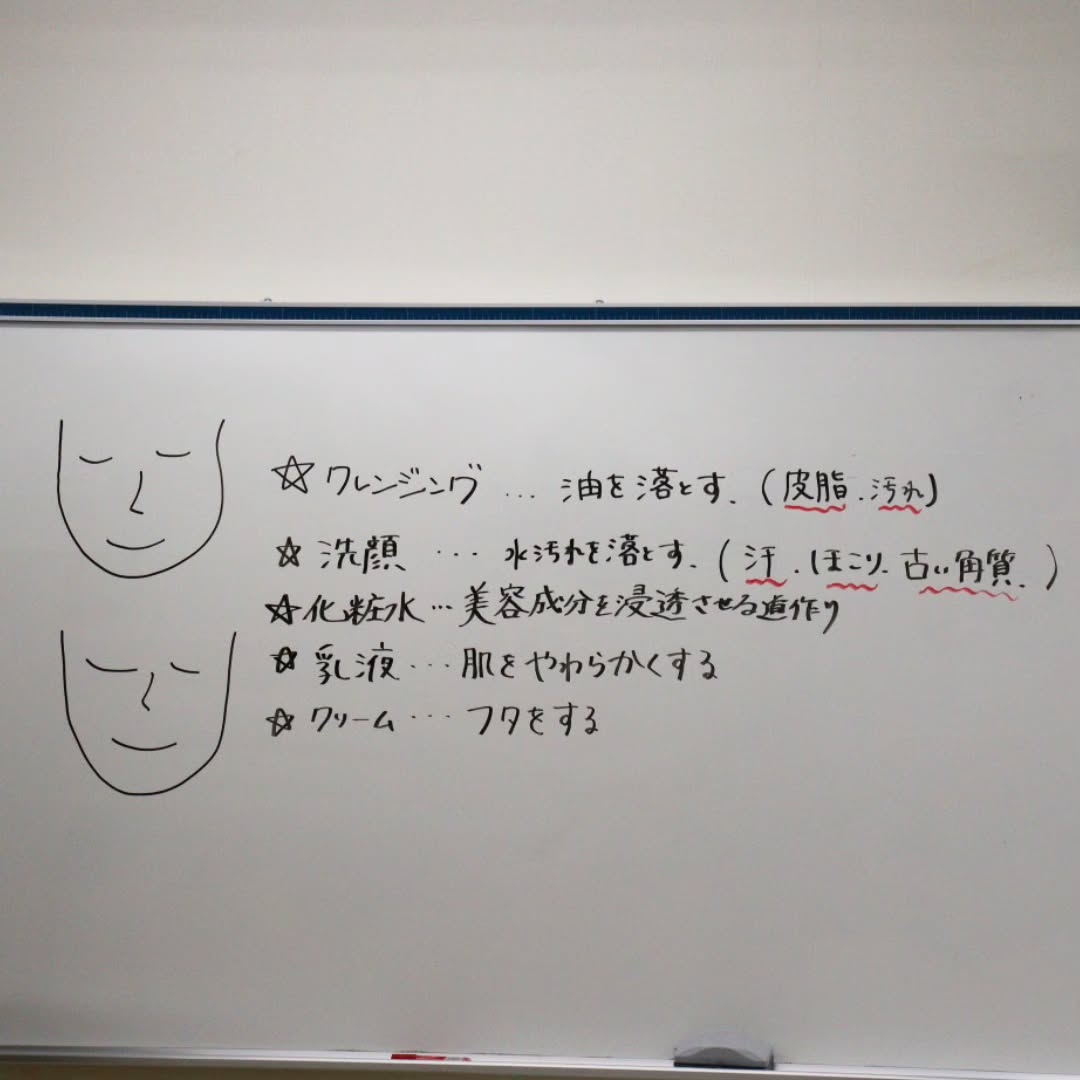 ☆クレンジング … 油を落とす.(皮脂.汚れ)
☆洗顔 … 水汚れを落とす.(汗.ほこり.古い角質.)
☆化粧水…美容成分を浸透させる道作り
☆乳液…肌をやわらかくする
☆クリーム…フタをする